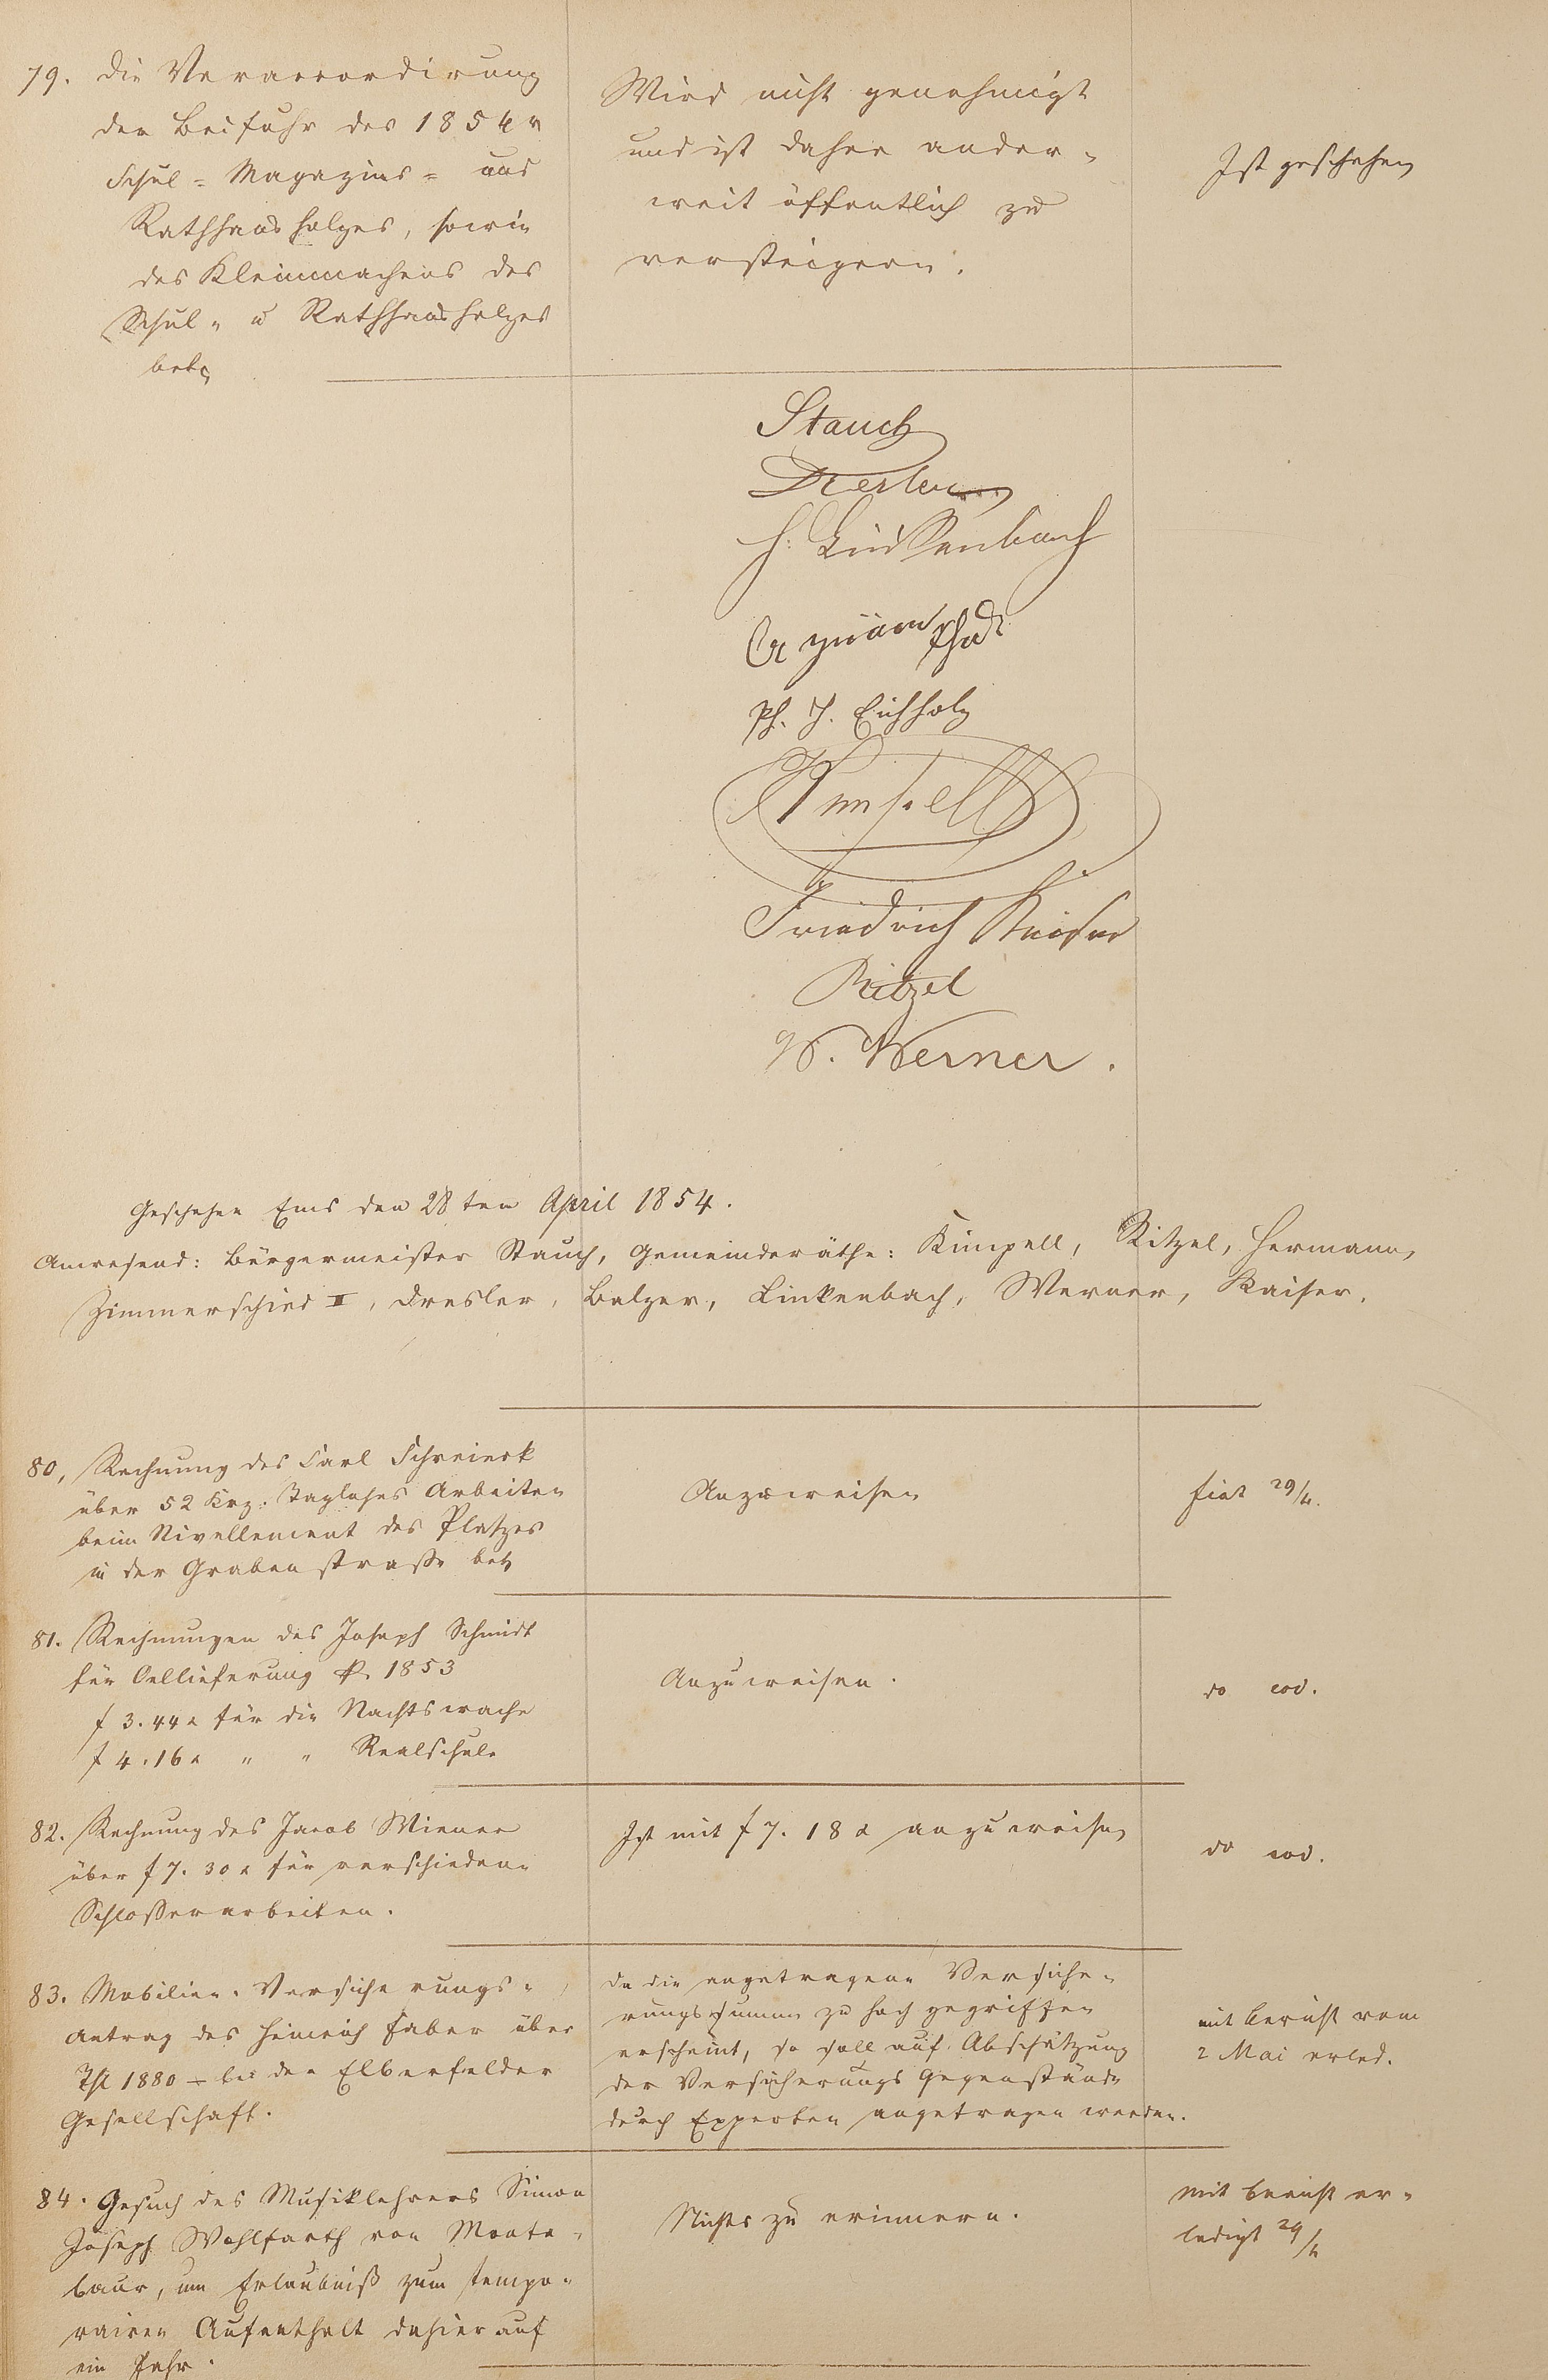 79. die Veraccordirung
der Beifuhr des 1854r
Schul- Magazins- und
Rathhausholzes, sowie
des Kleinmachens des
Schul- u Rathhausholzes
betr
Wird nicht genehmigt
und ist daher ander-
weit öffentlich zu
versteigern.
Ist geschehen
Stauch
Dresler
H. Linkenbach
Ph. J. Eichholz
Kimpell
Friedrich Kaiser
Ritzel
W. Werner.
Geschehen Ems den 28ten April 1854.
Anwesend: Bürgermeister Stauch, Gemeinderäthe: Kimpell, Ritzel, Hermann,
Zimmerschied II, Dresler, Balzer, Linkenbach, Werner, Kaiser.
80, Rechnung des Carl Schreierk
über 52 Krz. Taglohns Arbeiten
beim Nivellement des Platzes
in der Grabenstraße betr
Anzuweisen
fiat 29/4.
81. Rechnungen des Joseph Schmidt
für Oellieferung p. 1853
f 3.44 x für die Nachtswache
f 4.16 x " " Realschule
Anzuweisen.
do eod.
82. Rechnung des Jacob Wiener
über f 7. 30 x für verschiedene
Schlosserarbeiten.
Ist mit f 7. 18 x anzuweisen
do eod.
83. Mobilien-Versicherungs-
Antrag des Heinrich Faber über
Thl 1880 – bei der Elberfelder
Gesellschaft.
da die angetragene Versiche-
rungssumme zu hoch gegriffen
erscheint, so soll auf Abschätzung
der Versicherungs Gegenstände
durch Experten angetragen werden.
mit Bericht vom
2 Mai erled.
84. Gesuch des Musiklehrers Simon
Joseph Wohlfarth von Monta-
baur, um Erlaubniß zum tempo-
rairen Aufenthalt dahier auf
ein Jahr.
Nichts zu erinnern.
mit Bericht er-
ledigt 29/4